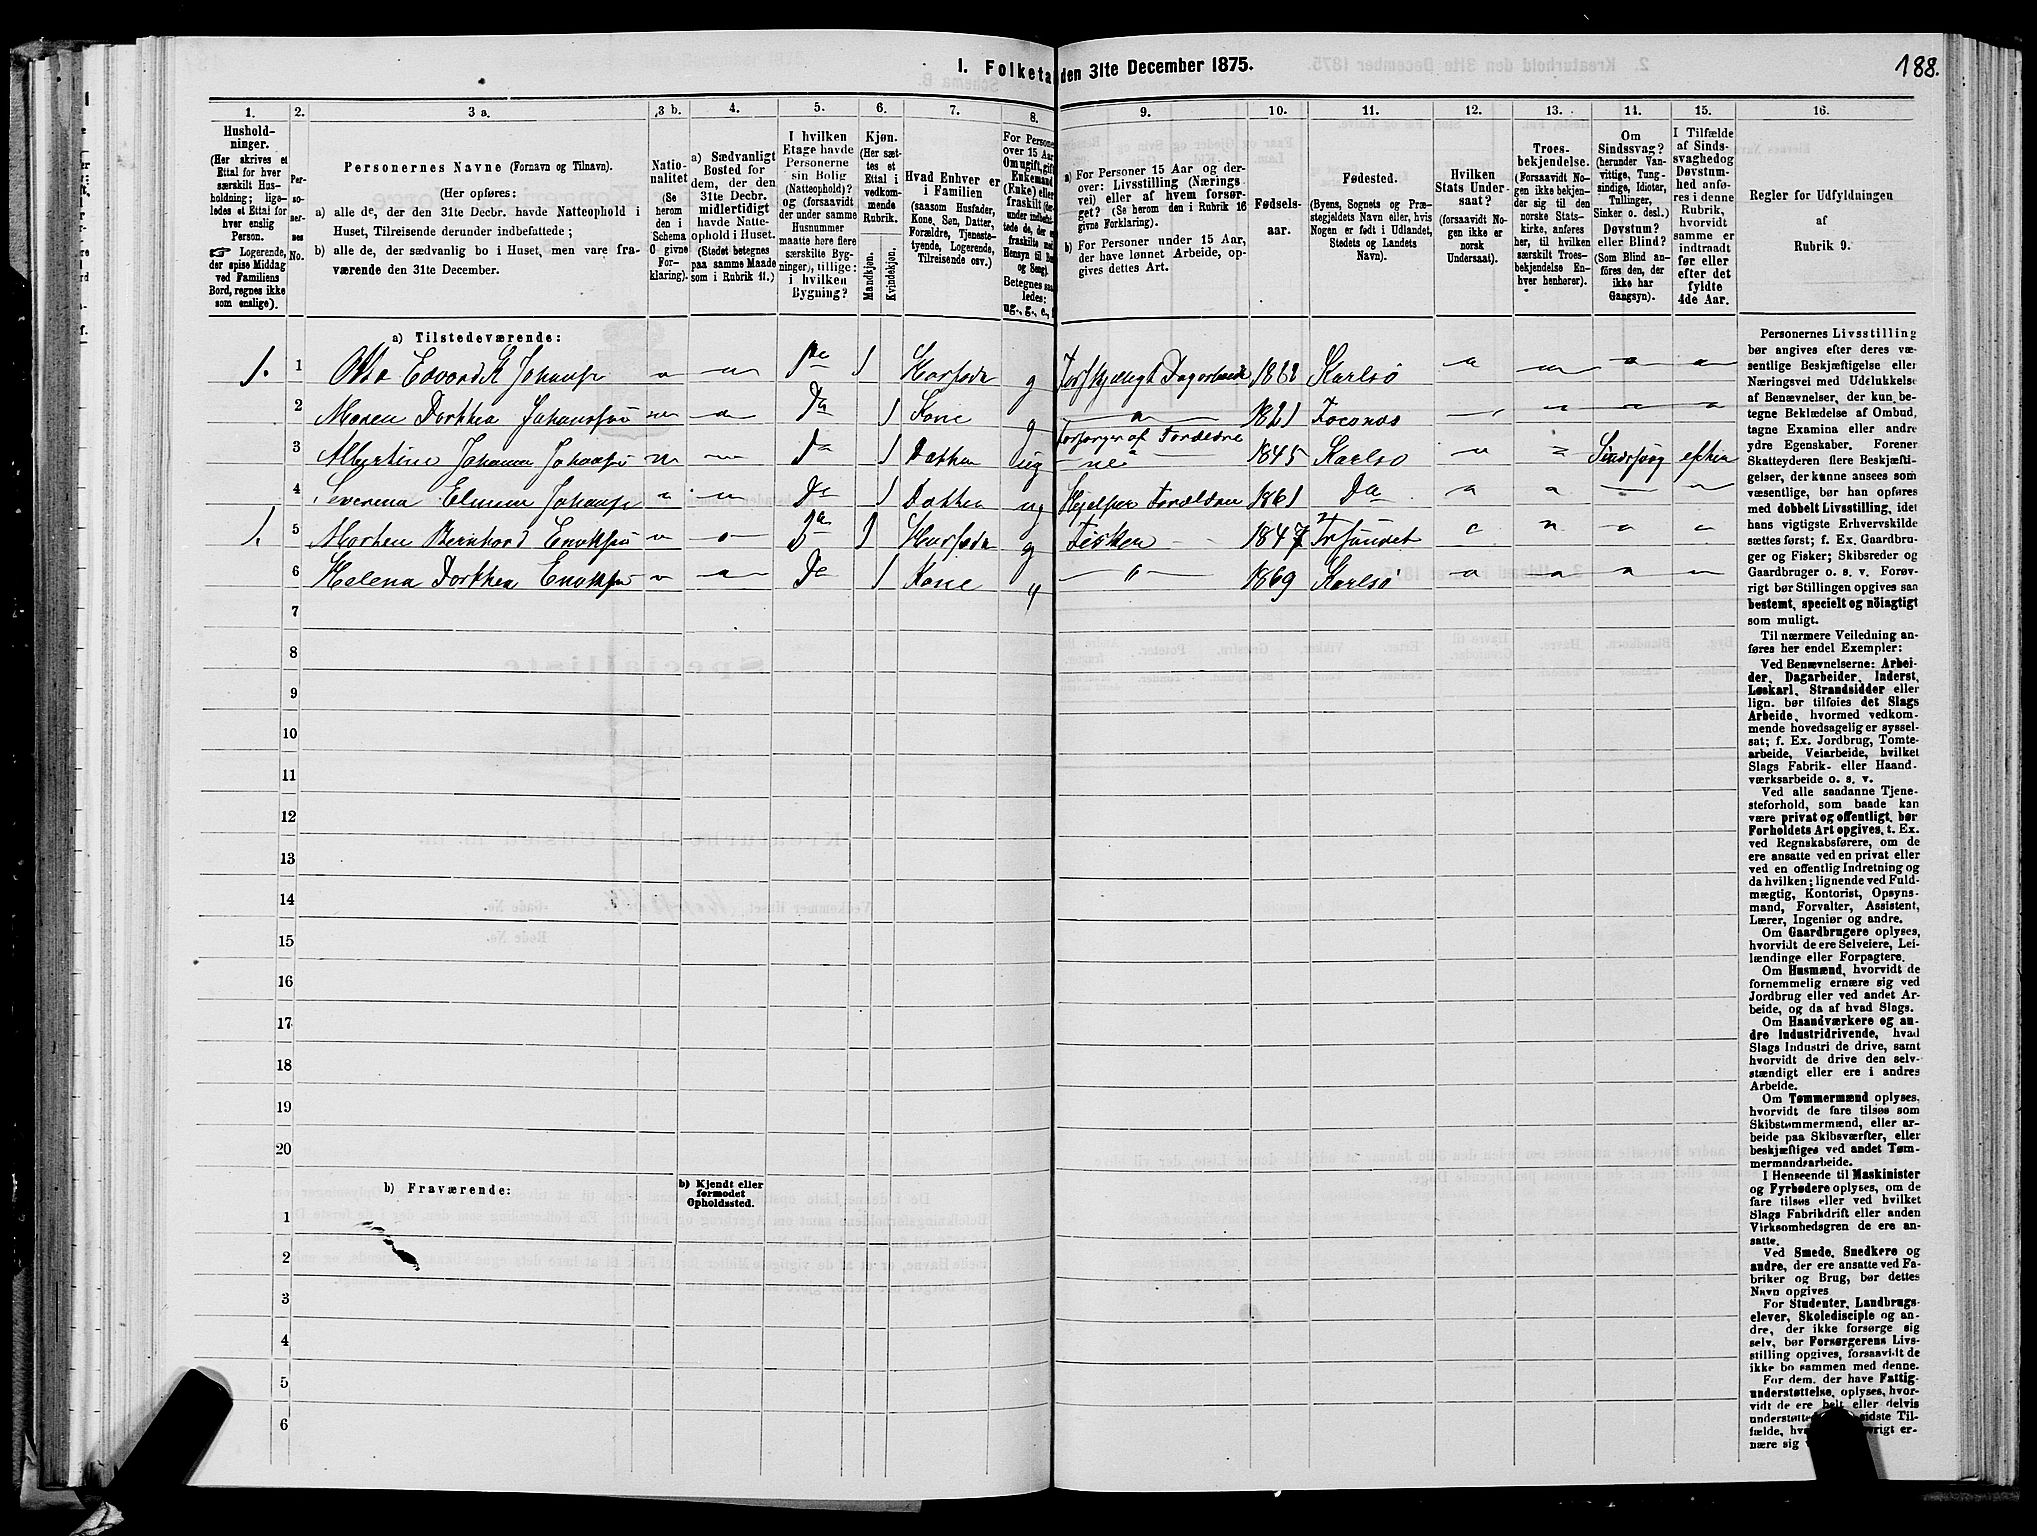 188.
1. Folketa den 31te December 1875.
1. 2. 3 a. 3 b. 4. 5. 6. 7. 8. 9. 10. 11. 12. 13. 14. 15. 16.
Hushold-
ninger.
(Her skrives et
Ettal for hver
særskilt Hus-
holdning; lige-
ledes et Ettal for
hver enslig
Person.
☞ Logerende,
der spise Middag
ved Familiens
Bord, regnes ikke
som enslige).
Per-
so-
ner-
nes
No.
Personernes Navne (Fornavn og Tilnavn).
(Her opføres:
a) alle de, der den 31te Decbr. havde Natteophold i
Huset, Tilreisende derunder indbefattede;
b) alle de, der sædvanlig bo i Huset, men vare fra-
værende den 31te December.
Natio-
nalitet
(Se
herom
den i
Schema
O givne
For-
klaring).
a) Sædvanligt
Bosted for
dem, der den
31te Decbr.
midlertidigt
havde Natte-
ophold i Huset.
(Stedet betegnes
paa samme Maade
som i Rubrik 11.)
I hvilken
Etage havde
Personerne
sin Bolig
(Natteophold)?
og (forsaavidt
der under samme
Husnummer
maatte høre flere
særskilte Byg-
ninger), tillige:
i hvilken
Bygning?
Kjøn.
(Her sæt-
tes et
Ettal i
vedkom-
mende
Rubrik.
Mandkjøn.
Kvindekjøn.
Hvad Enhver er
i Familien
(saasom Husfader,
Kone, Søn, Datter,
Forældre, Tjeneste-
tyende, Logerende,
Tilreisende osv.)
For Persone
over 15 Aar
Om ugift, gift
Enkemand
(Enke) eller
fraskilt
Betegnes saa
ledes:
ug., g., e., f
a) For Personer 15 Aar og der-
over: Livsstilling (Nærings
vei) eller af hvem forsør-
get? (Se herom den i Rubrik 16
givne Forklaring).
b) For Personer under 15 Aar,
der have lønnet Arbeide, op-
gives dettes Art.
Fødsels-
aar.
Fødested.
(Byens, Sognets og Præ-
stegjeldets Navn eller, hvis
Nogen er født i Udlandet,
Stedets og Landets
Navn).
Hvilken
Stats Under-
saat?
(forsaavidt No-
gen ikke er
norsk
Undersaat).
Troes-
bekjendelse.
(Forsaavidt No-
gen ikke bekjen-
der sig til den
norske Stats-
kirke, anføres
her, til hvilken
særskilt Troes-
bekjendelse En-
hver henhører).
Om
Sindssvag?
(herunder Van-
vittige, Tung-
sindige, Idioter,
Tullinger,
Sinker o. desl.)
Døvstum?
eller Blind?
(Som Blind an-
føres den, der
ikke har
Gangsyn).
I Tilfælde
af Sinds-
svaghed og
Døvstum-
hed anfø-
res i denne
Rubrik,
hvorvidt
samme er
indtraadt
før eller
efter det
fyldte
4de Aar.
Regler for Udfyldningen
af
Rubrik 9.
a) Tilstedeværende:
1. 1 Otto Edvard K Johans 1 Husfader g Forskjelligt Dagarbeide Karlsø
2 Maren Dorthea Johans Do 1 Kone g 1821
3 Albertine Johanna Johans Do 1 Datter ug Forsørger af Forældrene 1845 Karlsø Sindssvag efter
4 Severina Johans Do 1 Datter ug Hjelper Forældrene 1861 Do
1. 5 Morten Bernhard Enoksen Do 1 Husfader g Fisker 1847
6 Helena Dorthea Enoks Do 1 Kone " 1869 Karlsø
7
8
9
10
11
12
13
14
15
16
17
18
19
20
b) Fraværende: b) Kjendt eller
formodet
Opholdssted.
1
2
3
4
5
6
Personernes Livsstilling
bør angives efter deres væ-
sentlige Beskjæftigelse eller
Næringsvei med Udelukkelse
af Benævnelser, der kun be-
tegne Beklædelse af Ombud,
tagne Examina eller andre
ydre Egenskaber. Forener
Skatteyderen flere Beskjæfti-
gelser, der kunne ansees som
væsentlige, bør han opføres
med dobbelt Livsstilling, idet
hans vigtigste Erhvervskilde
sættes først; f. Ex. Gaardbru-
ger og Fisker; Skibsreder og
Gaardbruger o. s. v. Forøv-
rigt bør Stillingen opgives saa
bestemt, specielt og nöiagtigt
som muligt.
Til nærmere Veiledning an-
føres her endel Exempler:
Ved Benævnelserne: Arbei-
der, Dagarbeider, Inderst,
Løskarl, Strandsidder eller
lign. bør tilføies det Slags
Arbeide, hvormed vedkom-
mende hovedsagelig er syssel-
sat; f. Ex. Jordbrug, Tomte-
arbeide, Veiarbeide, hvilket
Slags Fabrik- eller Haand-
værksarbeide o. s. v.
Ved alle saadanne Tjene-
steforhold, som baade kan
være privat og offentligt, bør
Forholdets Art opgives, t. Ex.
ved Regnskabsførere, om de
ere ansatte ved en privat eller
ved en offentlig Indretning og
da hvilken; lignende ved Fuld-
mægtig, Kontorist, Opsyns-
mand, Forvalter, Assistent,
Lærer, Ingeniør og andre.
Om Gaardbrugere oplyses,
hvorvidt de ere Selveiere, Lei-
lændinge eller Forpagtere.
Om Husmænd, hvorvidt de
fornemmelig ernære sig ved
Jordbrug eller ved andet Ar-
beide, og da af hvad Slags.
Om Haandværkere og an-
dre Industridrivende, hvad
Slags Industri de drive, samt
hvorvidt de drive den selv-
stændigt eller ere i andres
Arbeide.
Om Tømmermænd oplyses,
hvorvidt de fare tilsøs som
Skibstømmermænd, eller ar-
beide paa Skibsværfter, eller
beskjæftiges ved andet Tøm-
mermandsarbeide.
I Henseende til Maskinister
og Fyrbødere oplyses, om de
fare tilsøs eller ved hvilket
Slags Fabrikdrift eller anden
Virksomhedsgren de ere an-
satte.
Ved Smede, Snedkere og
andre, der ere ansatte ved Fa-
briker og Brug, bør dettes
Navn opgives
For Studenter, Landbrugs-
elever, Skoledisciple og an-
dre, der ikke forsørge sig
selv, bør Forsørgerens Livs-
stilling opgives, forsaavidt de
ikke bo sammen med denne.
For dem, der have Fattig-
understøttelse, oplyses, hvor-
vidt de ere helt eller delvis
understøtte sidste Til-
fælde, hv vrigt er-
nære sig